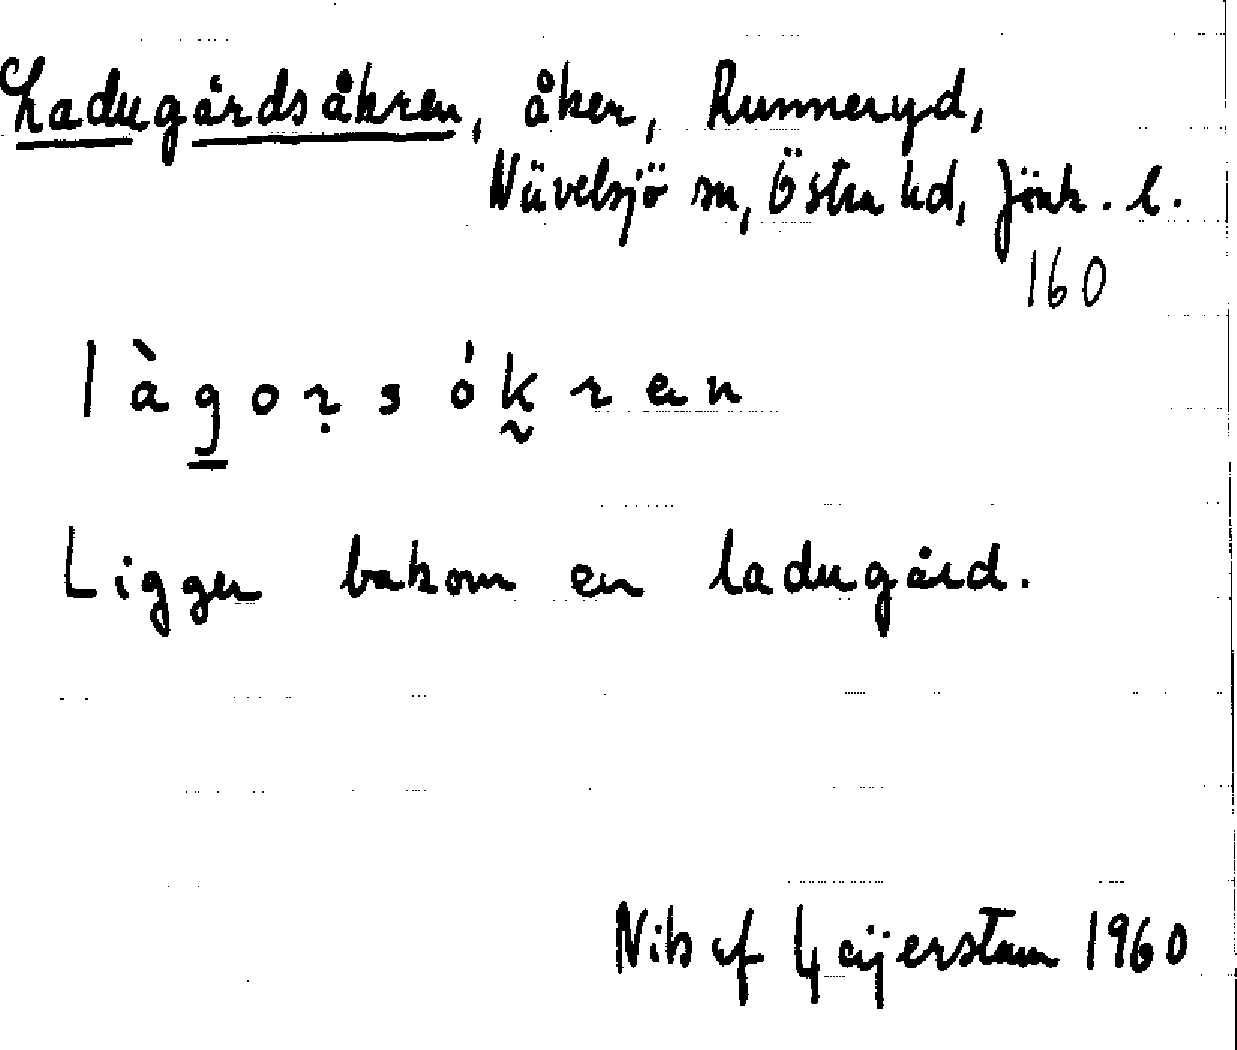 Ladugårdsåkren, åker, Runneryd,
Nävelsjö sn, Östra hd, Jönk. l.
160
làgoṛsók̰ren
Ligger bakom en ladugård.
Nils af Geijerstam 1960